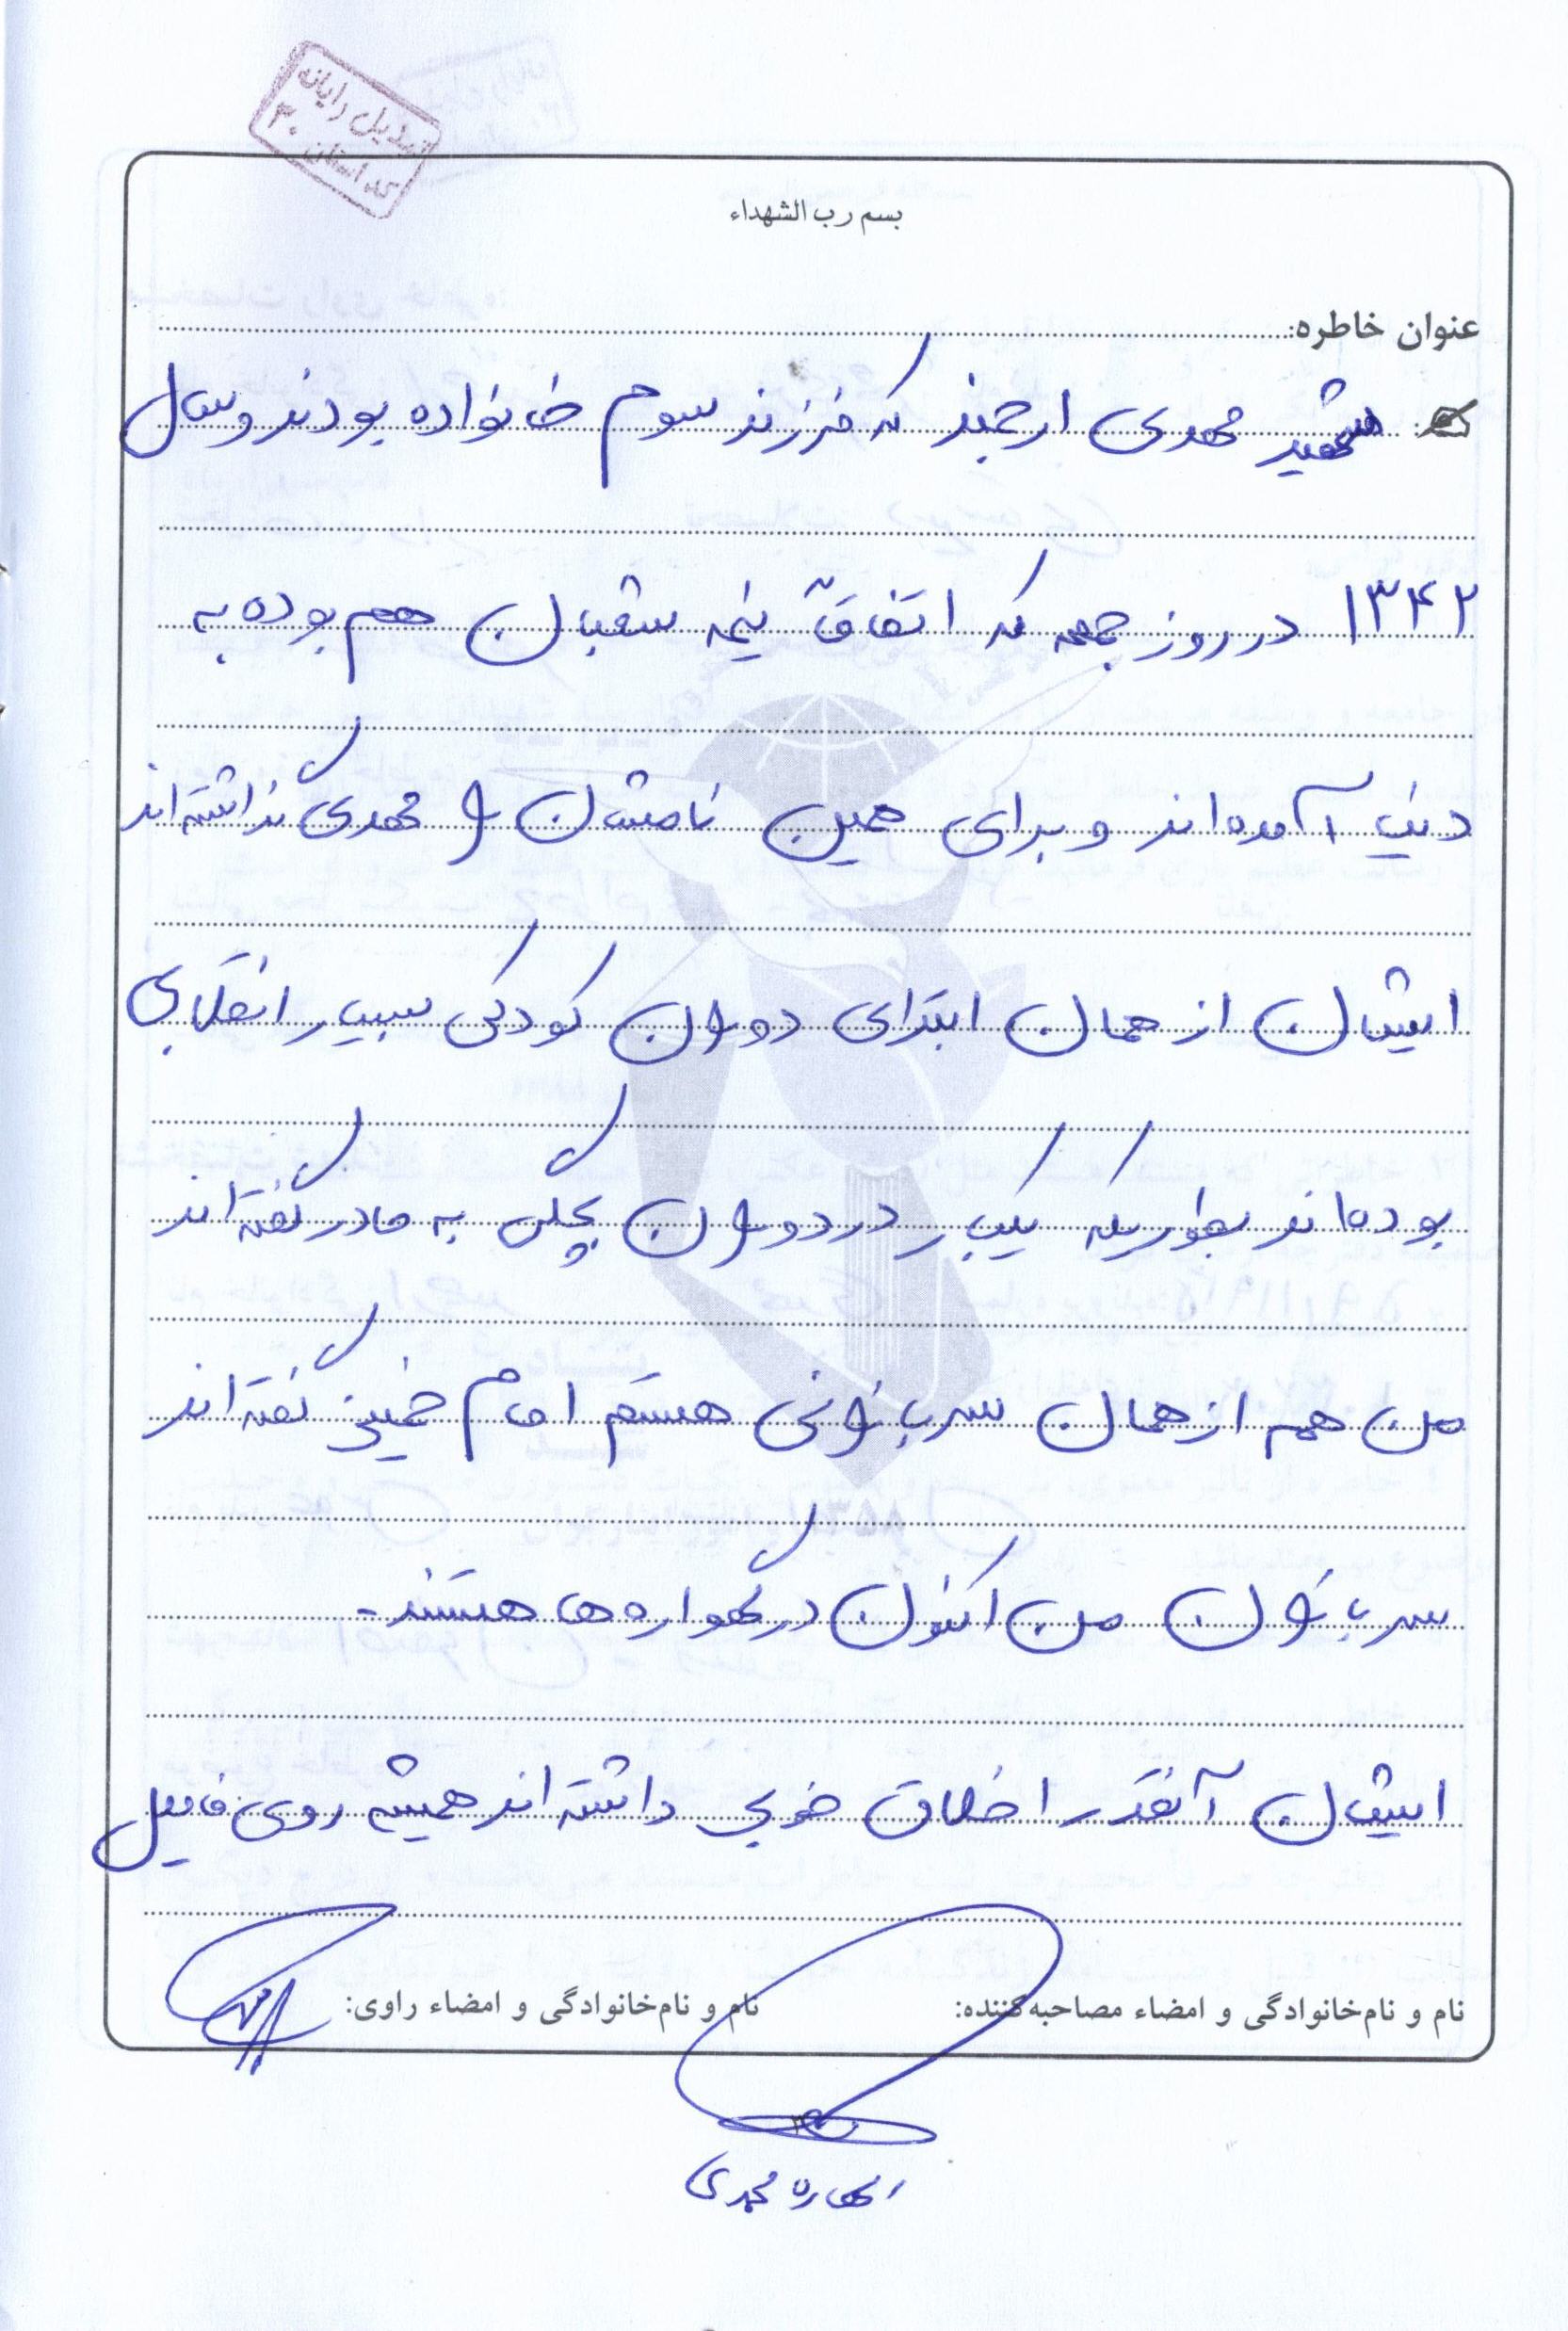 تبدیل رایانه
کد استان ۳۰
بسم رب الشهداء
عنوان خاطره:
شهید مهدی ارجمند که فرزند سوم خانواده بودند و سال
۱۳۴۲ در روز جمعه که اتفاقاً نیمه شعبان هم بوده به
دنیا آمده‌اند و برای همین نامشان را مهدی گذاشته‌اند
ایشان از همان ابتدای دوران کودکی بسیار انقلابی
بوده‌اند بطوریکه یکبار در دوران بچگی به مادر گفته‌اند
من هم از همان سربازانی هستم امام خمینی گفته‌اند
سربازان من اکنون در گهواره‌ها هستند.
ایشان آنقدر اخلاق خوبی داشته‌اند همیشه روی فامیل
نام و نام‌خانوادگی و امضاء مصاحبه‌کننده: نام و نام‌خانوادگی و امضاء راوی:
محمدی